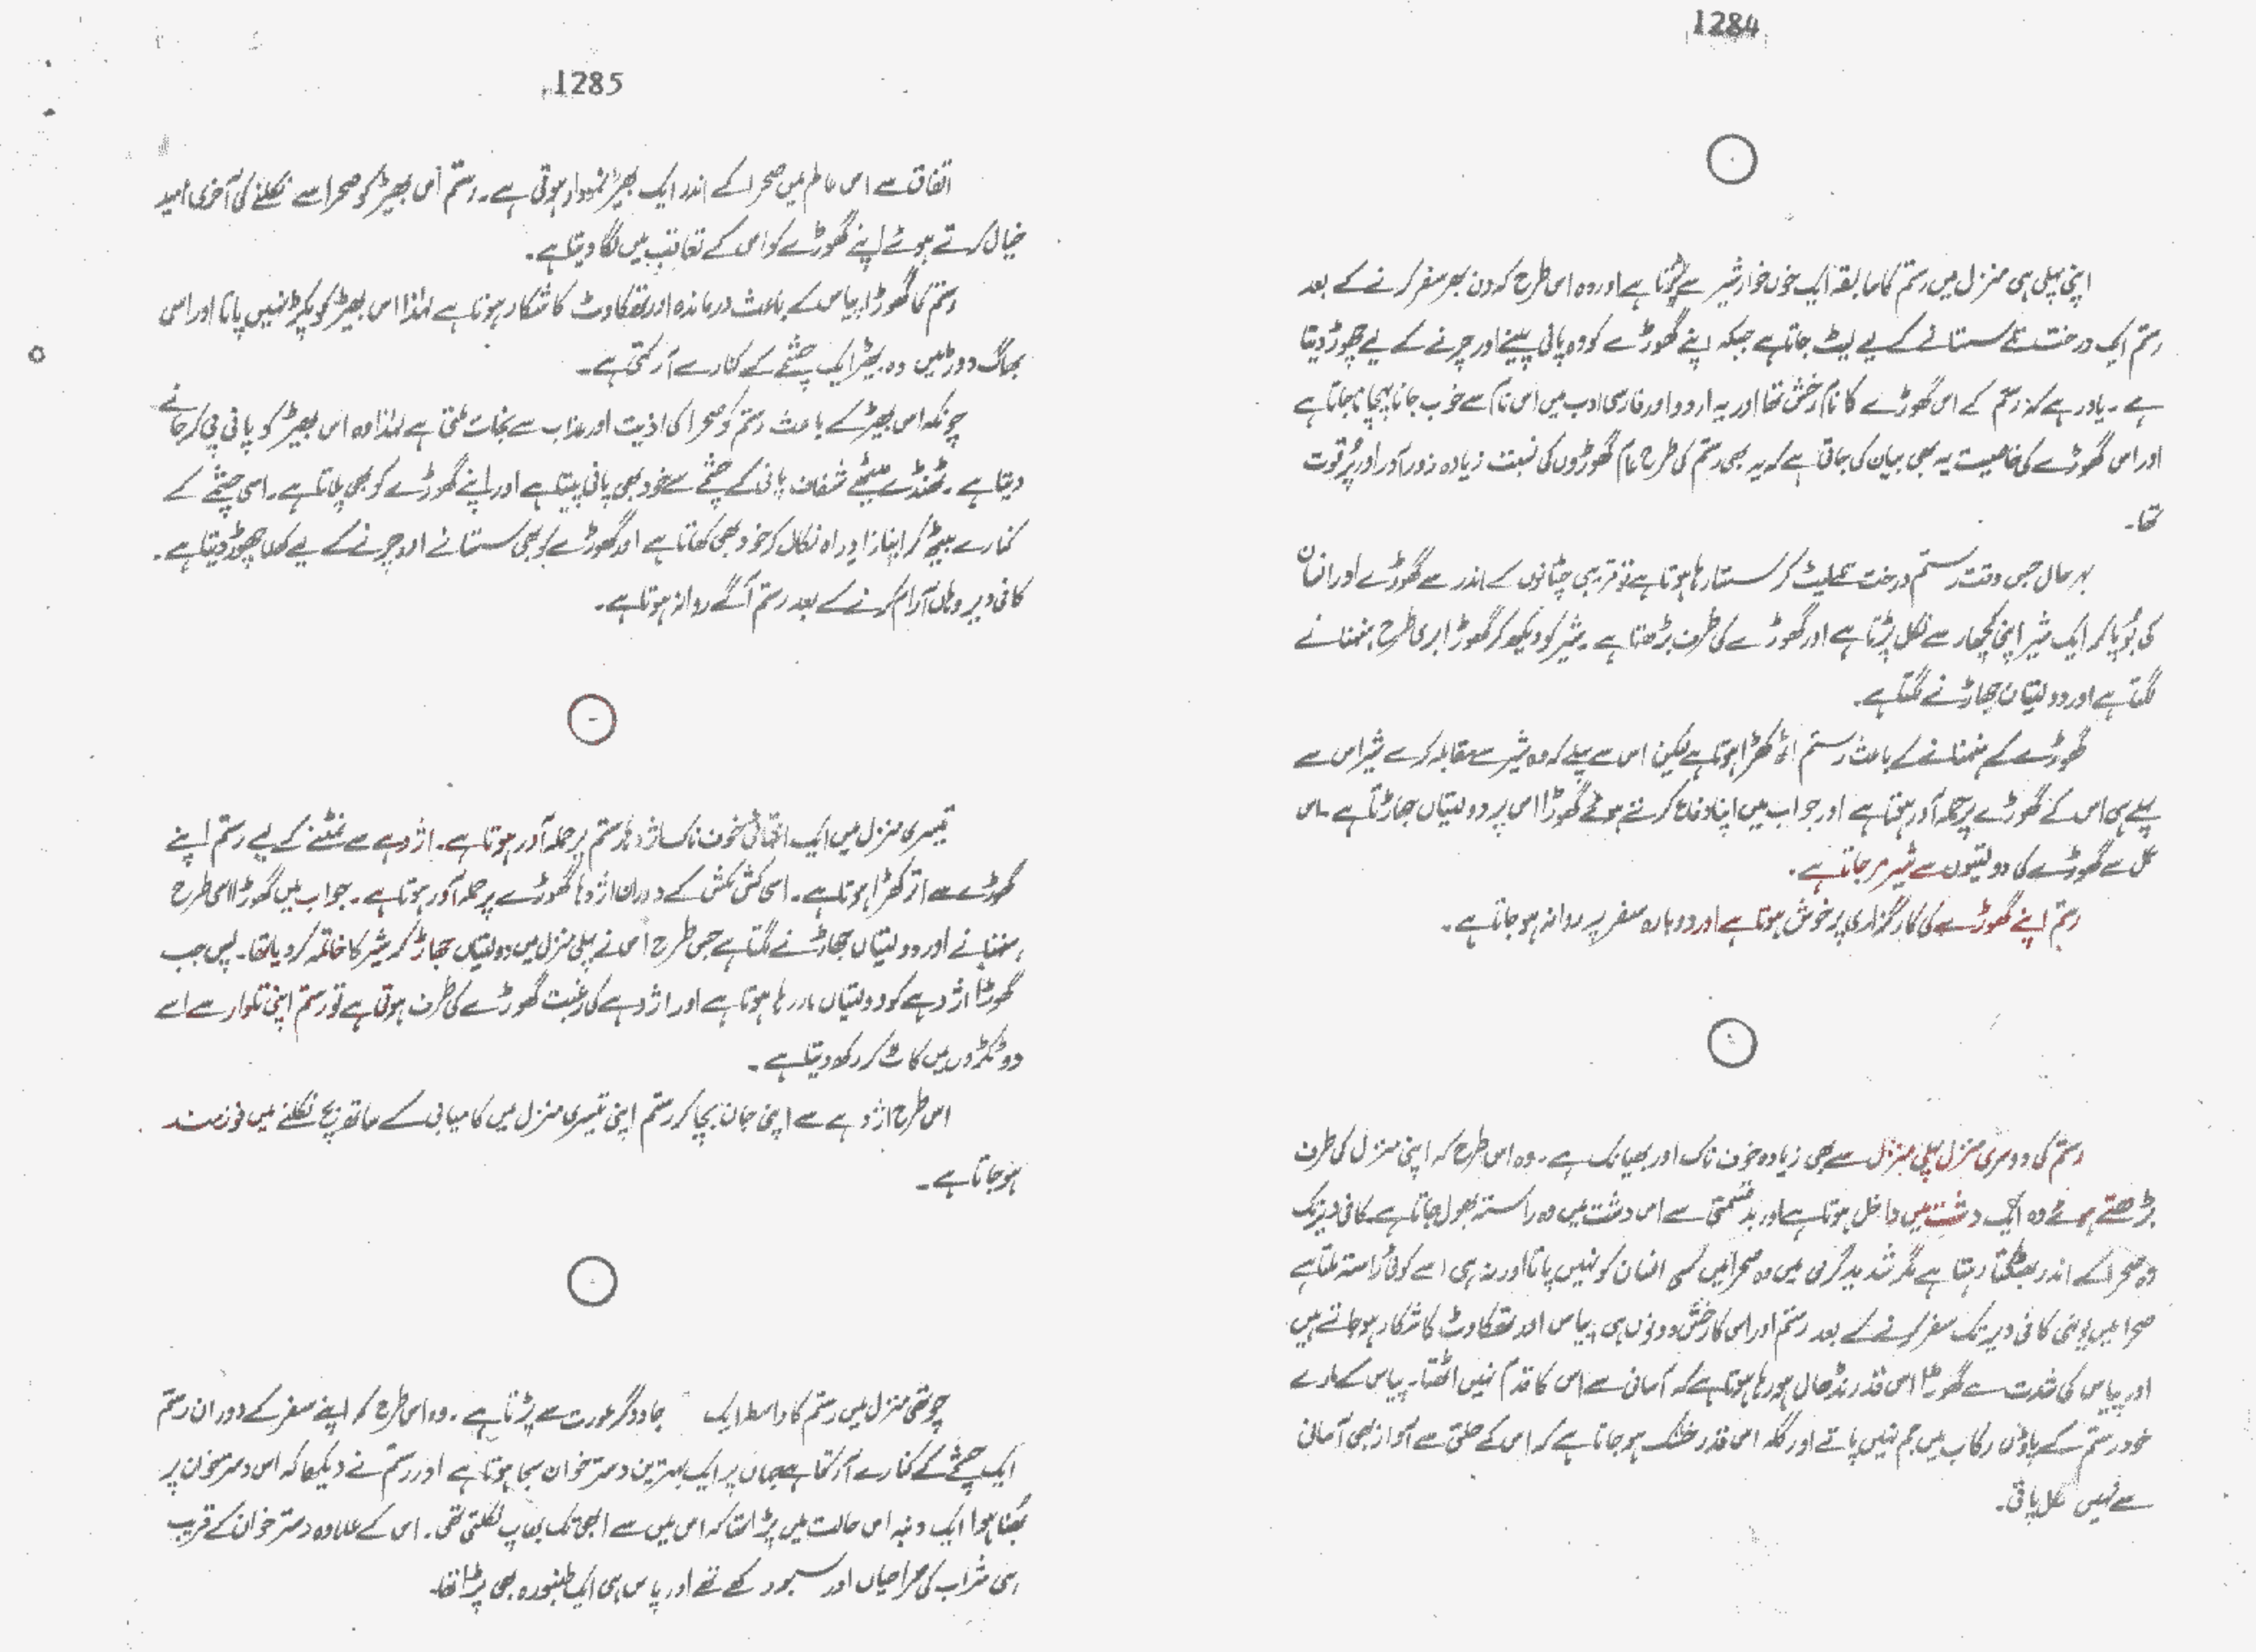 1284
اپنی پہلی ہی منزل میں رستم کا سابقہ ایک خوں خوار شیر سے پڑتا ہے اور وہ اس طرح کہ دن بھر سفر کرنے کے بعد
رستم ایک درخت تلے سستانے کے لیے لیٹ جاتا ہے جبکہ اپنے گھوڑے کو وہ پانی پینے اور چرنے کے لیے چھوڑ دیتا
ہے۔ یاد رہے کہ رستم کے اس گھوڑے کا نام رخش تھا اور یہ اردو اور فارسی ادب میں اس نام سے خوب جانا پہچانا جاتا ہے
اور اس گھوڑے کی خاصیت یہ بھی بیان کی جاتی ہے کہ یہ بھی رستم کی طرح عام گھوڑوں کی نسبت زیادہ زور آور اور پُر قوت
تھا۔
بہر حال جس وقت رستم درخت تلے لیٹ کر سستا رہا ہوتا ہے تو قریبی چٹانوں کے اندر سے گھوڑے اور انسان
کی بُو پا کر ایک شیر اپنی کچھار سے نکل پڑتا ہے اور گھوڑے کی طرف بڑھتا ہے۔ شیر کو دیکھ کر گھوڑا بری طرح ہنہنانے
لگتا ہے اور دولتیاں جھاڑنے لگتا ہے۔
گھوڑے کے ہنہنانے کے باعث رستم اٹھ کھڑا ہوتا ہے لیکن اس سے پہلے کہ وہ شیر سے مقابلہ کرے شیر اس سے
پہلے ہی اس کے گھوڑے پر حملہ آور ہوتا ہے اور جواب میں اپنا دفاع کرتے ہوئے گھوڑا اس پر دولتیاں جھاڑتا ہے۔ اس
سے گھوڑے کی دولتیوں سے شیر مر جاتا ہے۔
رستم اپنے گھوڑے کی کارگزاری پر خوش ہوتا ہے اور دوبارہ سفر پر روانہ ہو جاتا ہے۔
رستم کی دوسری منزل پہلی منزل سے بھی زیادہ خوف ناک اور بھیانک ہے۔ وہ اس طرح کہ اپنی منزل کی طرف
بڑھتے ہوئے وہ ایک دشت میں داخل ہوتا ہے اور بدقسمتی سے اس دشت میں وہ راستہ بھول جاتا ہے کافی دیر تک
وہ صحرا کے اندر بھٹکتا رہتا ہے مگر شدید گرمی میں وہ صحرا میں کسی انسان کو نہیں پاتا اور نہ ہی اسے کوئی راستہ ملتا ہے
صحرا میں یونہی کافی دیر تک سفر کرنے کے بعد رستم اور اس کا رخش دونوں ہی پیاس اور تھکاوٹ کا شکار ہو جاتے ہیں
اور پیاس کی شدت سے گھوڑا اس قدر نڈھال ہو رہا ہوتا ہے کہ آسانی سے اس کا قدم نہیں اٹھتا۔ پیاس کے مارے
خود رستم کے پاؤں رکاب میں جم نہیں پاتے اور گلہ اس قدر خشک ہو جاتا ہے کہ اس کے حلق سے آواز بھی آسانی
سے نہیں نکل پاتی۔
1285
اتفاق سے اس عالم میں صحرا کے اندر ایک بھیڑ نمودار ہوتی ہے۔ رستم اس بھیڑ کو صحرا سے نکلنے کی آخری امید
خیال کرتے ہوئے اپنے گھوڑے کو اس کے تعاقب میں لگا دیتا ہے۔
رستم کا گھوڑا پیاس کے باعث درماندہ اور تھکاوٹ کا شکار ہوتا ہے لہٰذا اس بھیڑ کو پکڑ نہیں پاتا اور اس
بھاگ دوڑ میں وہ بھیڑ ایک چشمے کے کنارے آ رکتی ہے۔
چونکہ اس بھیڑ کے باعث رستم کو صحرا کی اذیت اور عذاب سے نجات ملتی ہے لہٰذا وہ اس بھیڑ کو پانی پی کر جانے
دیتا ہے۔ ٹھنڈے میٹھے شفاف پانی کے چشمے سے خود بھی پانی پیتا ہے اور اپنے گھوڑے کو بھی پلاتا ہے۔ اسی چشمے کے
کنارے بیٹھ کر اپنا زادِ راہ نکال کر خود بھی کھاتا ہے اور گھوڑے کو بھی سستانے اور چرنے کے لیے کھلا چھوڑ دیتا ہے۔
کافی دیر وہاں آرام کرنے کے بعد رستم آگے روانہ ہوتا ہے۔
تیسری منزل میں ایک انتہائی خوف ناک اژدہا رستم پر حملہ آور ہوتا ہے۔ اژدہے سے نمٹنے کے لیے رستم اپنے
گھوڑے سے اتر کھڑا ہوتا ہے۔ اسی کش مکش کے دوران اژدہا گھوڑے پر حملہ آور ہوتا ہے۔ جواب میں گھوڑا اسی طرح
ہنہنانے اور دولتیاں جھاڑنے لگتا ہے جس طرح اُس نے پہلی منزل میں دولتیاں جھاڑ کر شیر کا خاتمہ کر دیا تھا۔ پس جب
گھوڑا اژدہے کو دولتیاں مار رہا ہوتا ہے اور اژدہے کی رغبت گھوڑے کی طرف ہوتی ہے تو رستم اپنی تلوار سے اسے
دو ٹکڑوں میں کاٹ کر رکھ دیتا ہے۔
اس طرح اژدہے سے اپنی جان بچا کر رستم اپنی تیسری منزل میں کامیابی کے ساتھ بچ نکلنے میں فوزمند
ہو جاتا ہے۔
چوتھی منزل میں رستم کا واسطہ ایک جادوگر عورت سے پڑتا ہے۔ وہ اس طرح کہ اپنے سفر کے دوران رستم
ایک چشمے کے کنارے آ رکتا ہے جہاں پر ایک بہترین دسترخوان سجا ہوتا ہے اور رستم نے دیکھا کہ اس دسترخوان پر
بھنا ہوا ایک دنبہ اس حالت میں پڑا تھا کہ اس میں سے ابھی تک بھاپ نکلتی تھی۔ اس کے علاوہ دسترخوان کے قریب
ہی شراب کی صراحیاں اور سبو رکھے تھے اور پاس ہی ایک طنبورہ بھی پڑا تھا۔